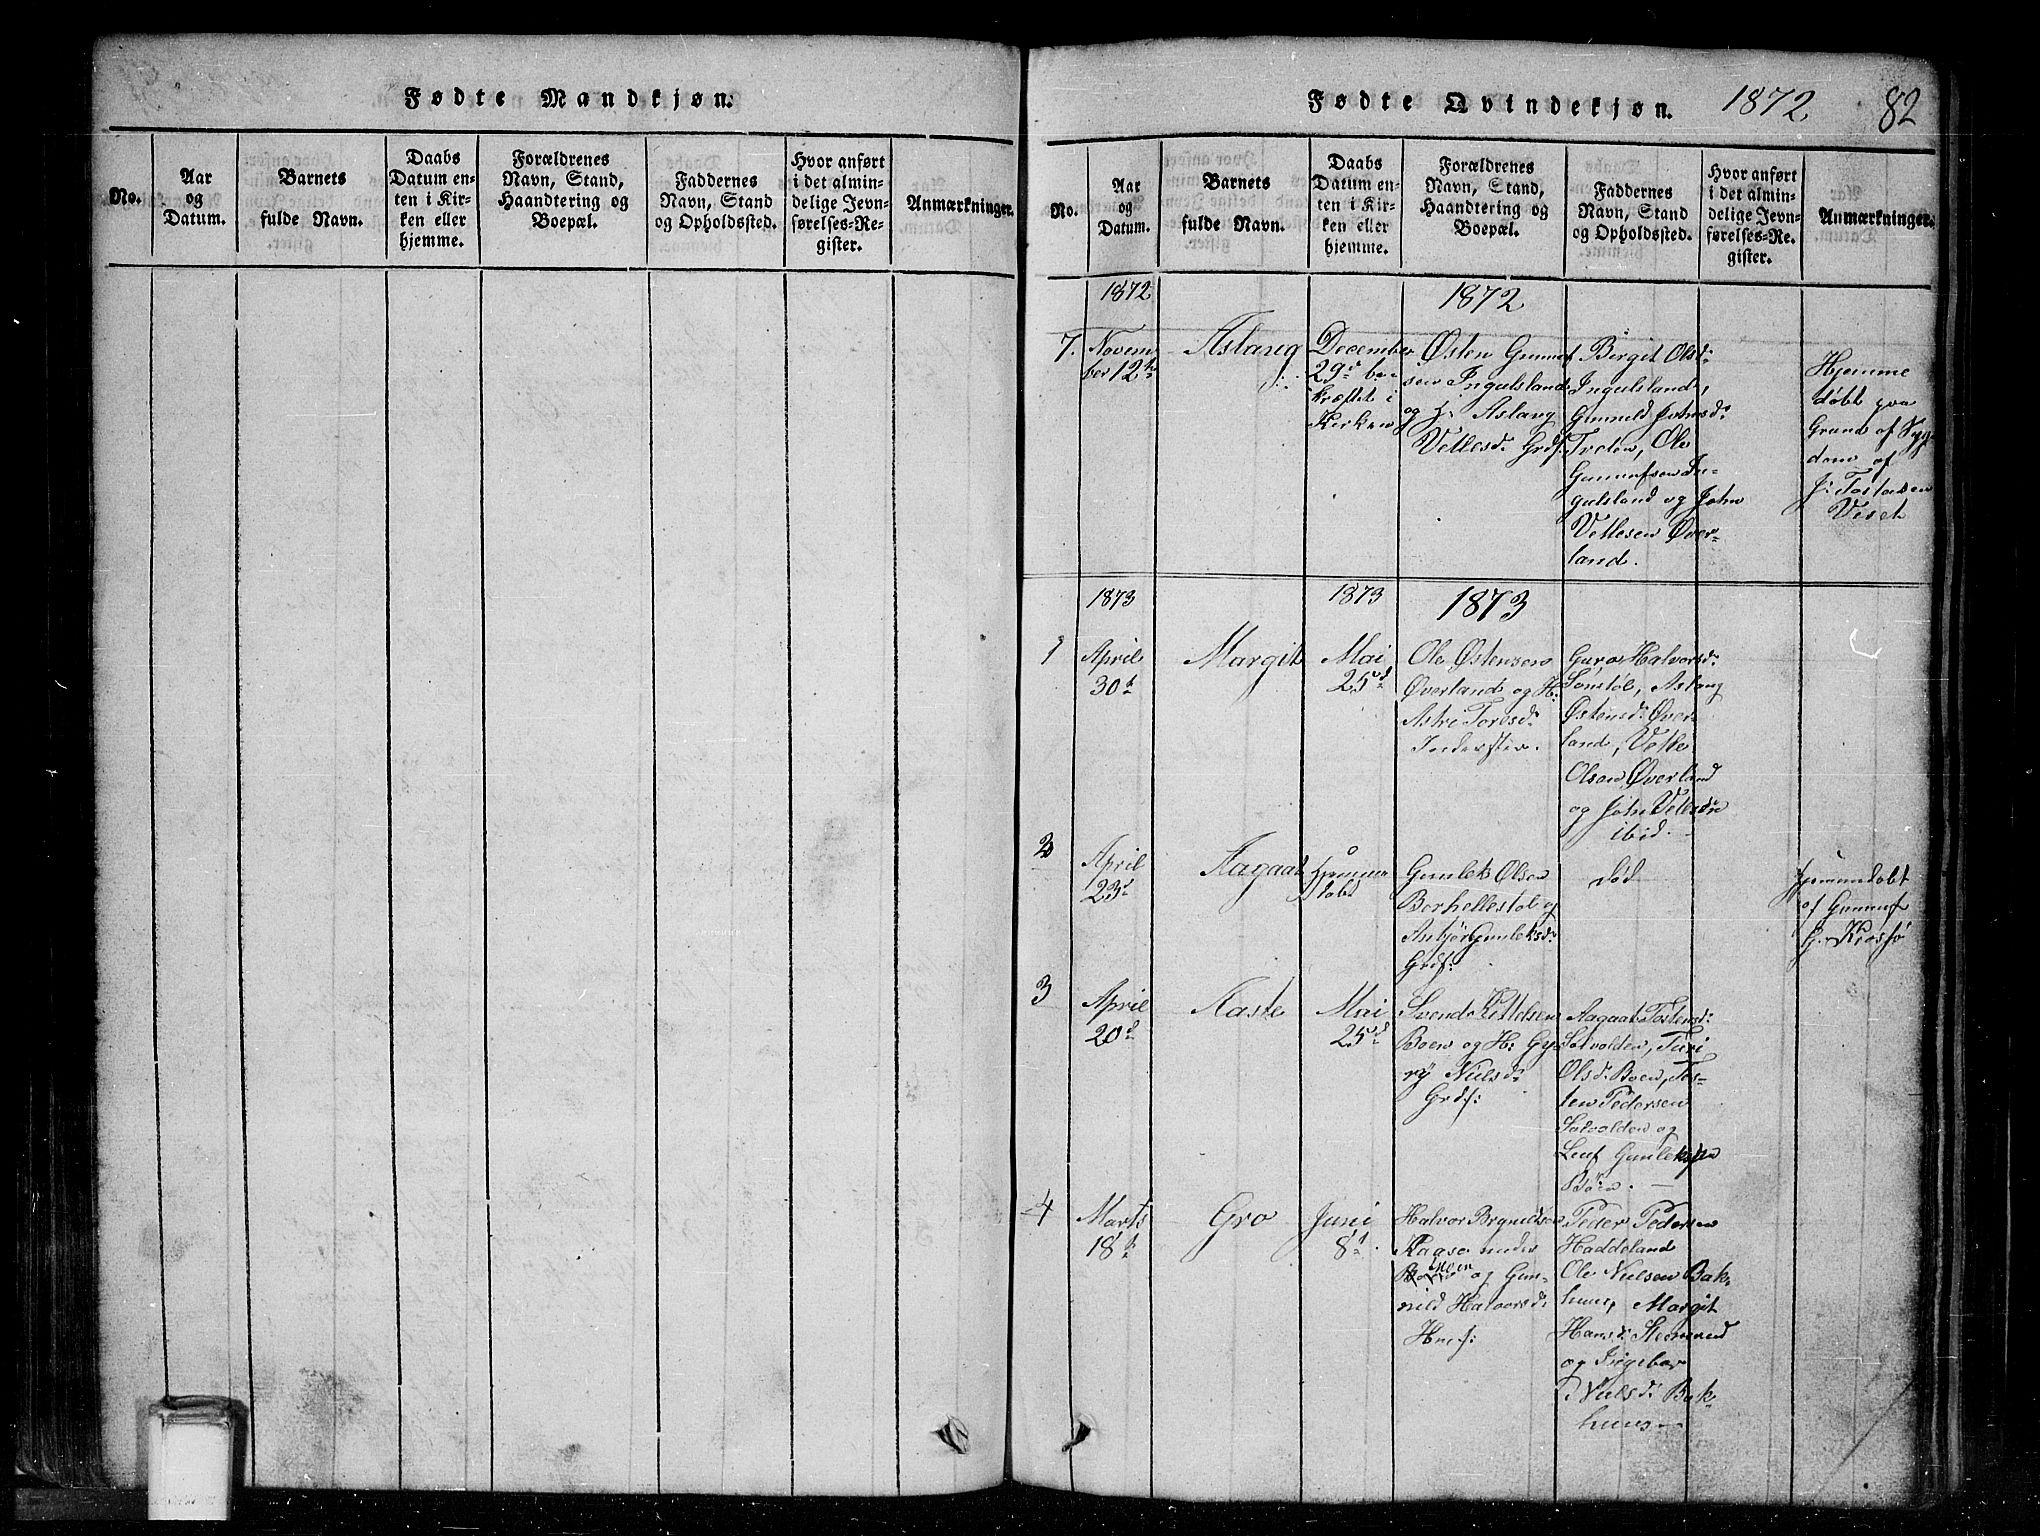 Fødte Mandkjøn.
No.
Aar
og
Datum.
Barnets
fulde Navn.
Daabs
Datum en-
ten i Kir-
ken eller
hjemme.
Forældrenes
Navn, Stand,
Haandtering og
Boepæl.
Faddernes
Navn, Stand
og Opholdssted.
Hvor anført
i det almin-
delige Jevn-
førelses-Re-
gister.
Anmærkninger.
Fødte Qvindekjøn. 1872. 82
No.
Aar
og
Datum.
Barnets
fulde Navn.
Daabs
Datum en-
ten i Kir-
ken eller
hjemme.
Forældrenes
Navn, Stand,
Haandtering og
Boepæl.
Faddernes
Navn, Stand
og Opholdssted.
Hvor anført
i det almin-
delige Jevn-
førelses-Re-
gister.
Anmærkninger.
1872
1872
7.
Novem
ber 12te
Aslaug
December
29d be-
kræftet i
Kirken
Østen Gunnuf
sen Ingulsland
og H: Aslaug
Vetlesd: Grdf:
Birgit Olsd:
Ingulsland,
Gunnild Johnsd:
Tveten, Ole
Gunnufsen In-
gulsland og John
Vetlesen Øver-
land.
Hjemme
døbt paa
Grund af Syg-
dom af
J: Tostasen
Viset
1873
1873
1873
1
April
30t
Margit
Mai
25d
Ole Østensen
Øverland og H:
Astre Toresd:
Inderster.
Guro Halvorsd:
Sønstøl, Aslaug
Østensd: Øver-
land, Vetle
Olsen Øverland
og John Vetlesen
ibid.
2
April
23d
Aagaat
Hjemme
døbt
Gunlek Olsen
Berhellestøl og
Anbjør Gunleksd:
Grdf:
død
Hjemmedøbt
af Gunnuf
G. Krossø
3
April
20d
Aaste
Mai
25d
Svend Kittelsen
Boen og H: Gy-
ry Nielsd:
Grdf:
Aagaat Tostensd:
Solvolden, Turi
Olsd: Boen, Tos-
ten Pedersen
Solvolden og
Leuf Gunleksen
Böen.
4
Marts
18t
Gro
Juni
8d.
Halvor Brynildsen
Raaso under
Moen og Gun-
nild Halvorsd:
Hmf:
Peder Pedersen
Haddeland
Ole Nielsen Bak-
huus, Margit
Hansd: Stemrud
og Ingebor
Nielsd: Bak-
huus